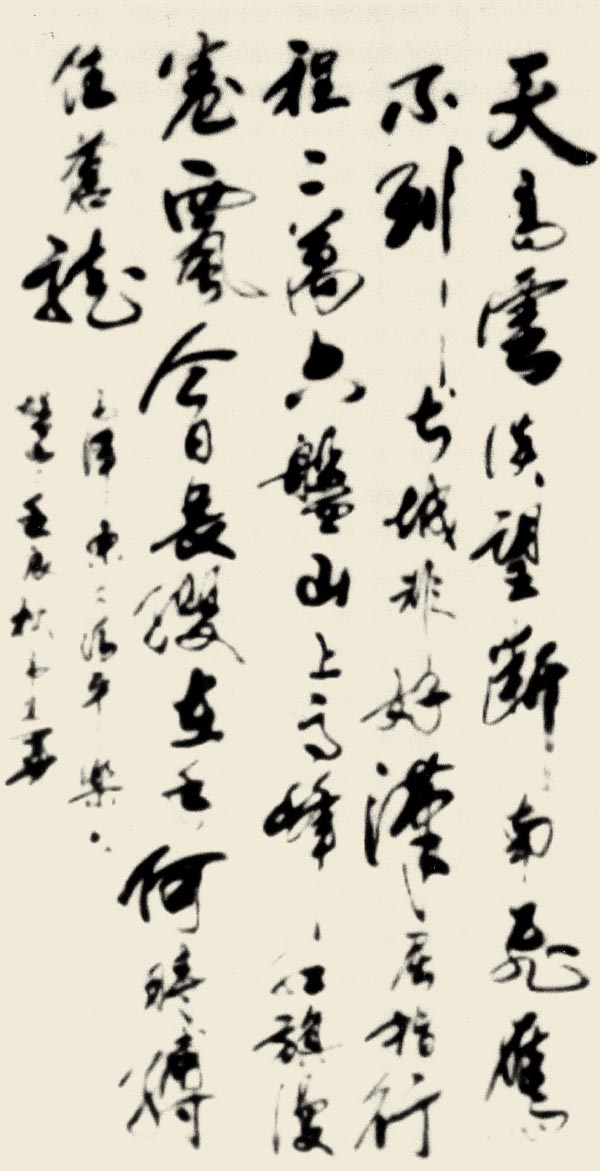 天高雲淡望斷南飛雁
不到长城非好漢屈指行
程二萬六盤山上高峰紅旗漫
卷西風今日長纓在手何時縛
住蒼龍
毛澤東清平樂
壬辰書